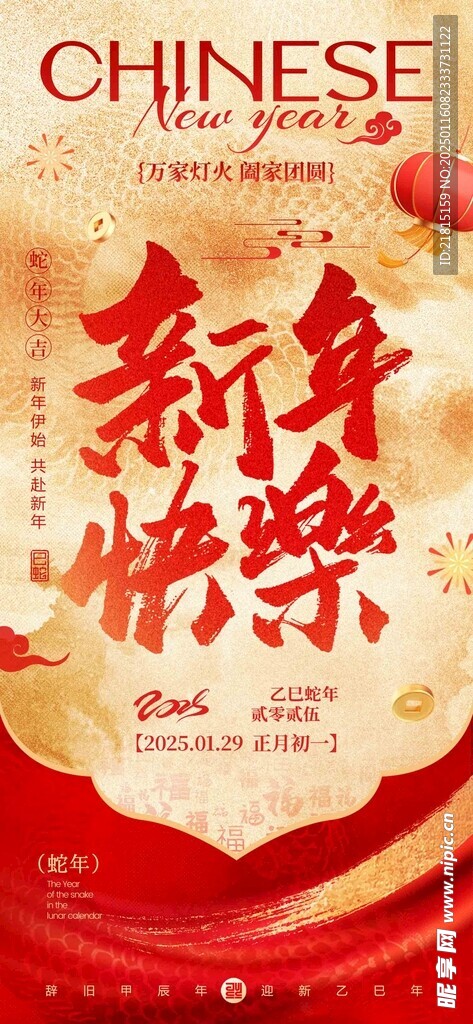 CHINESE
New year
{万家灯火 阖家团圆}
蛇年大吉
新年伊始 共赴新年
新年
快樂
2025
乙巳蛇年
贰零贰伍
【2025.01.29 正月初一】
福
（蛇年）
The Year
of the snake
in the
lunar calendar
辞旧甲辰年
迎新乙巳年
ID:21815159 NO.20250116082333731122
昵享网 www.nipic.cn